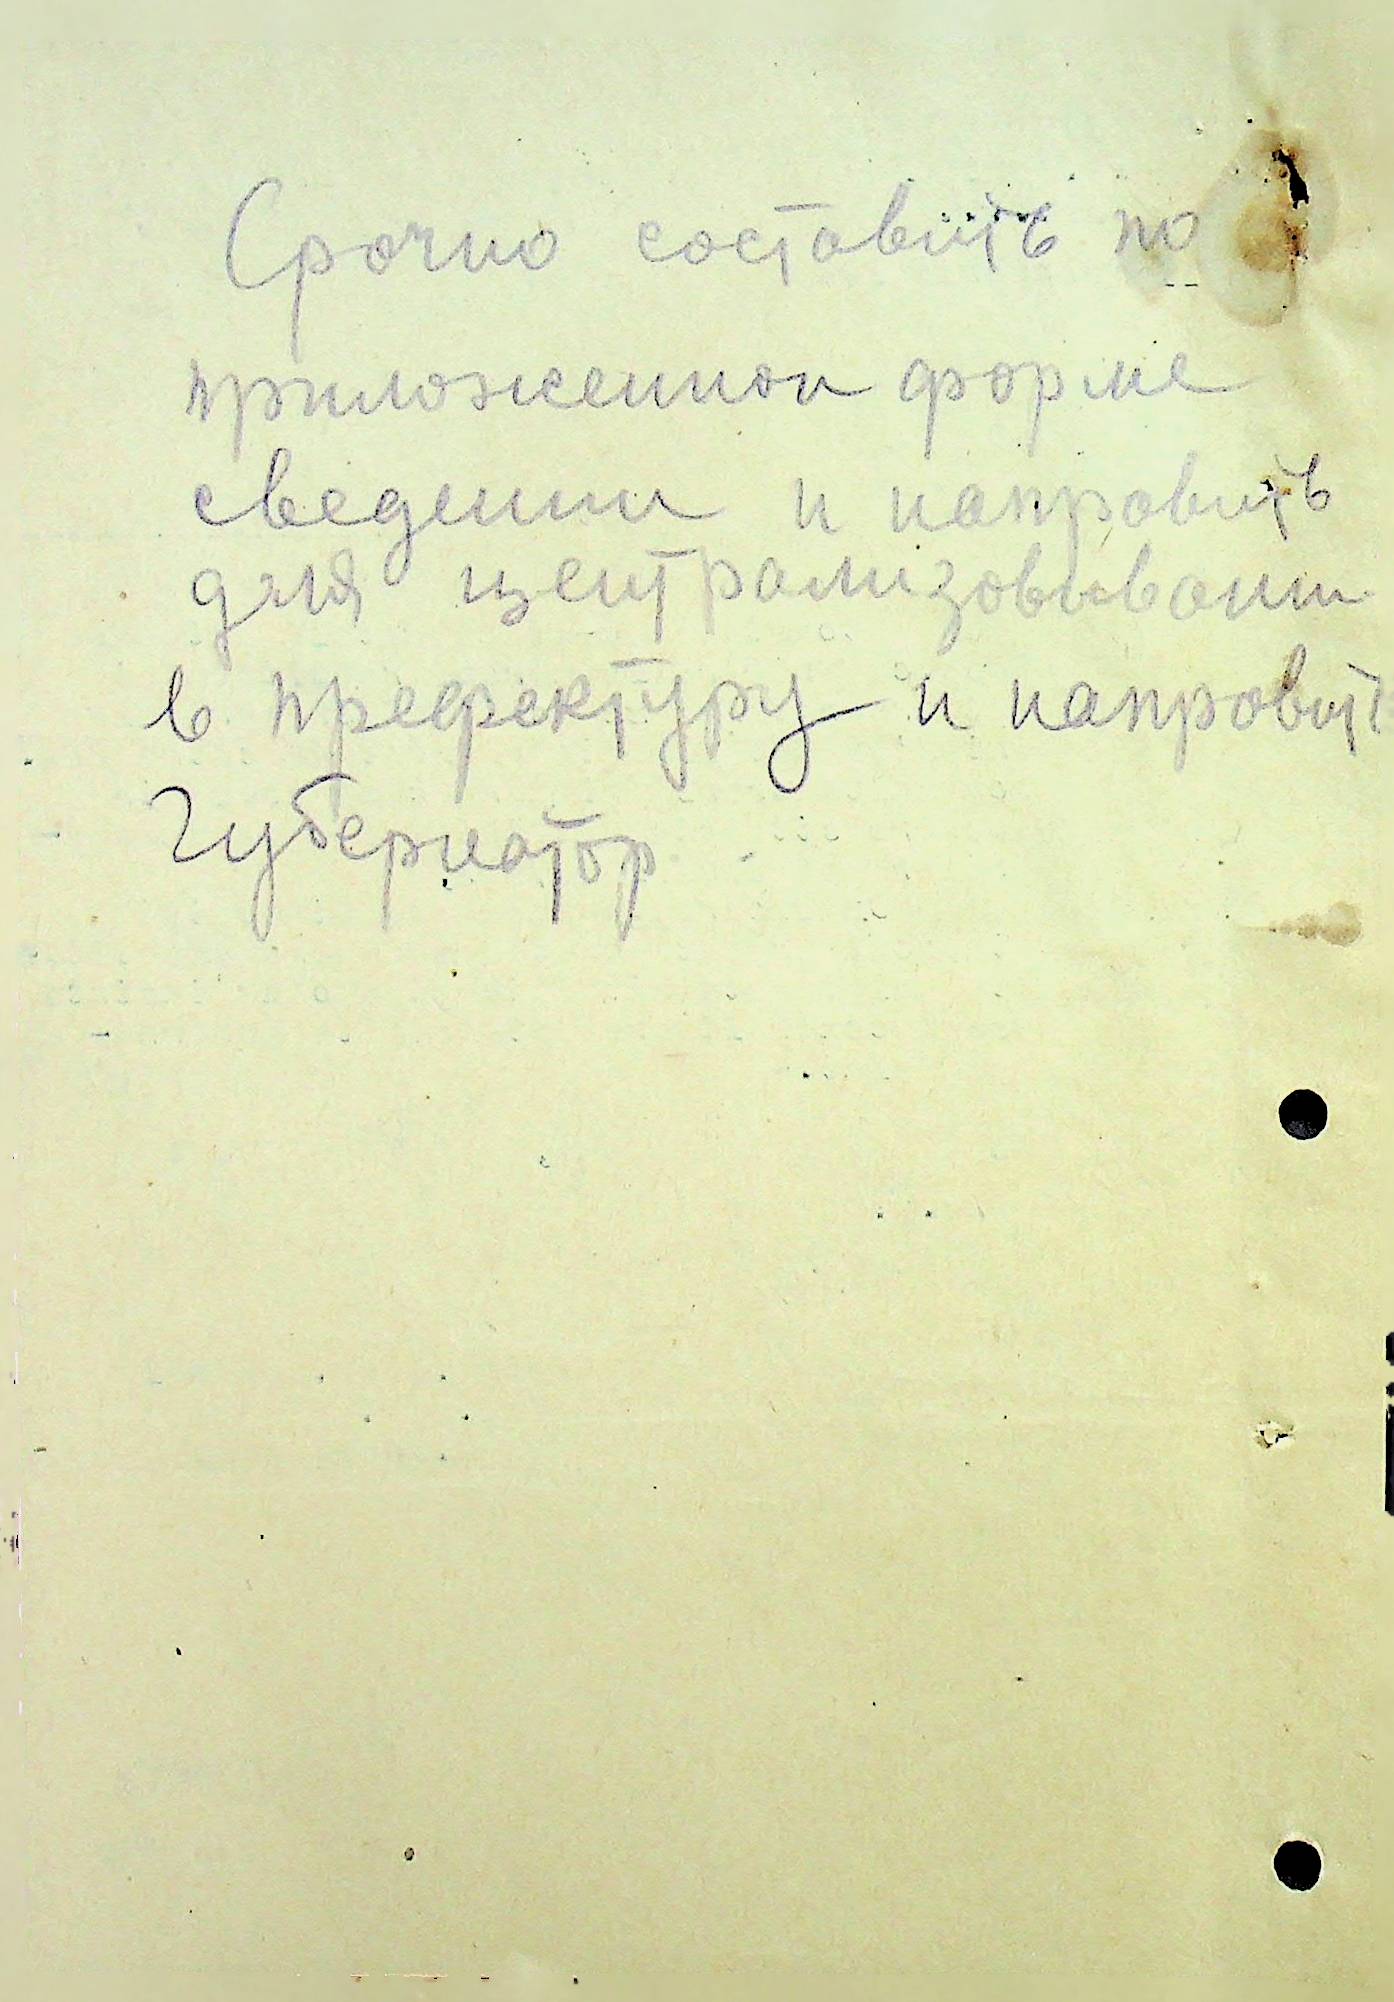 Срочно составить по
приложеннои форме
сведении и направить
для централизовивании
в префектуру и направит
Губернатор